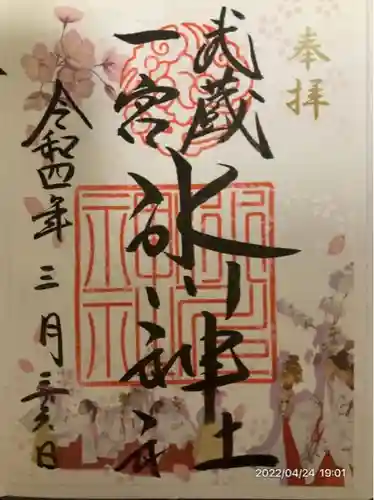 奉拝
武蔵
一宮
氷川神社
令和四年三月六日
氷川神社
2022/04/24 19:01